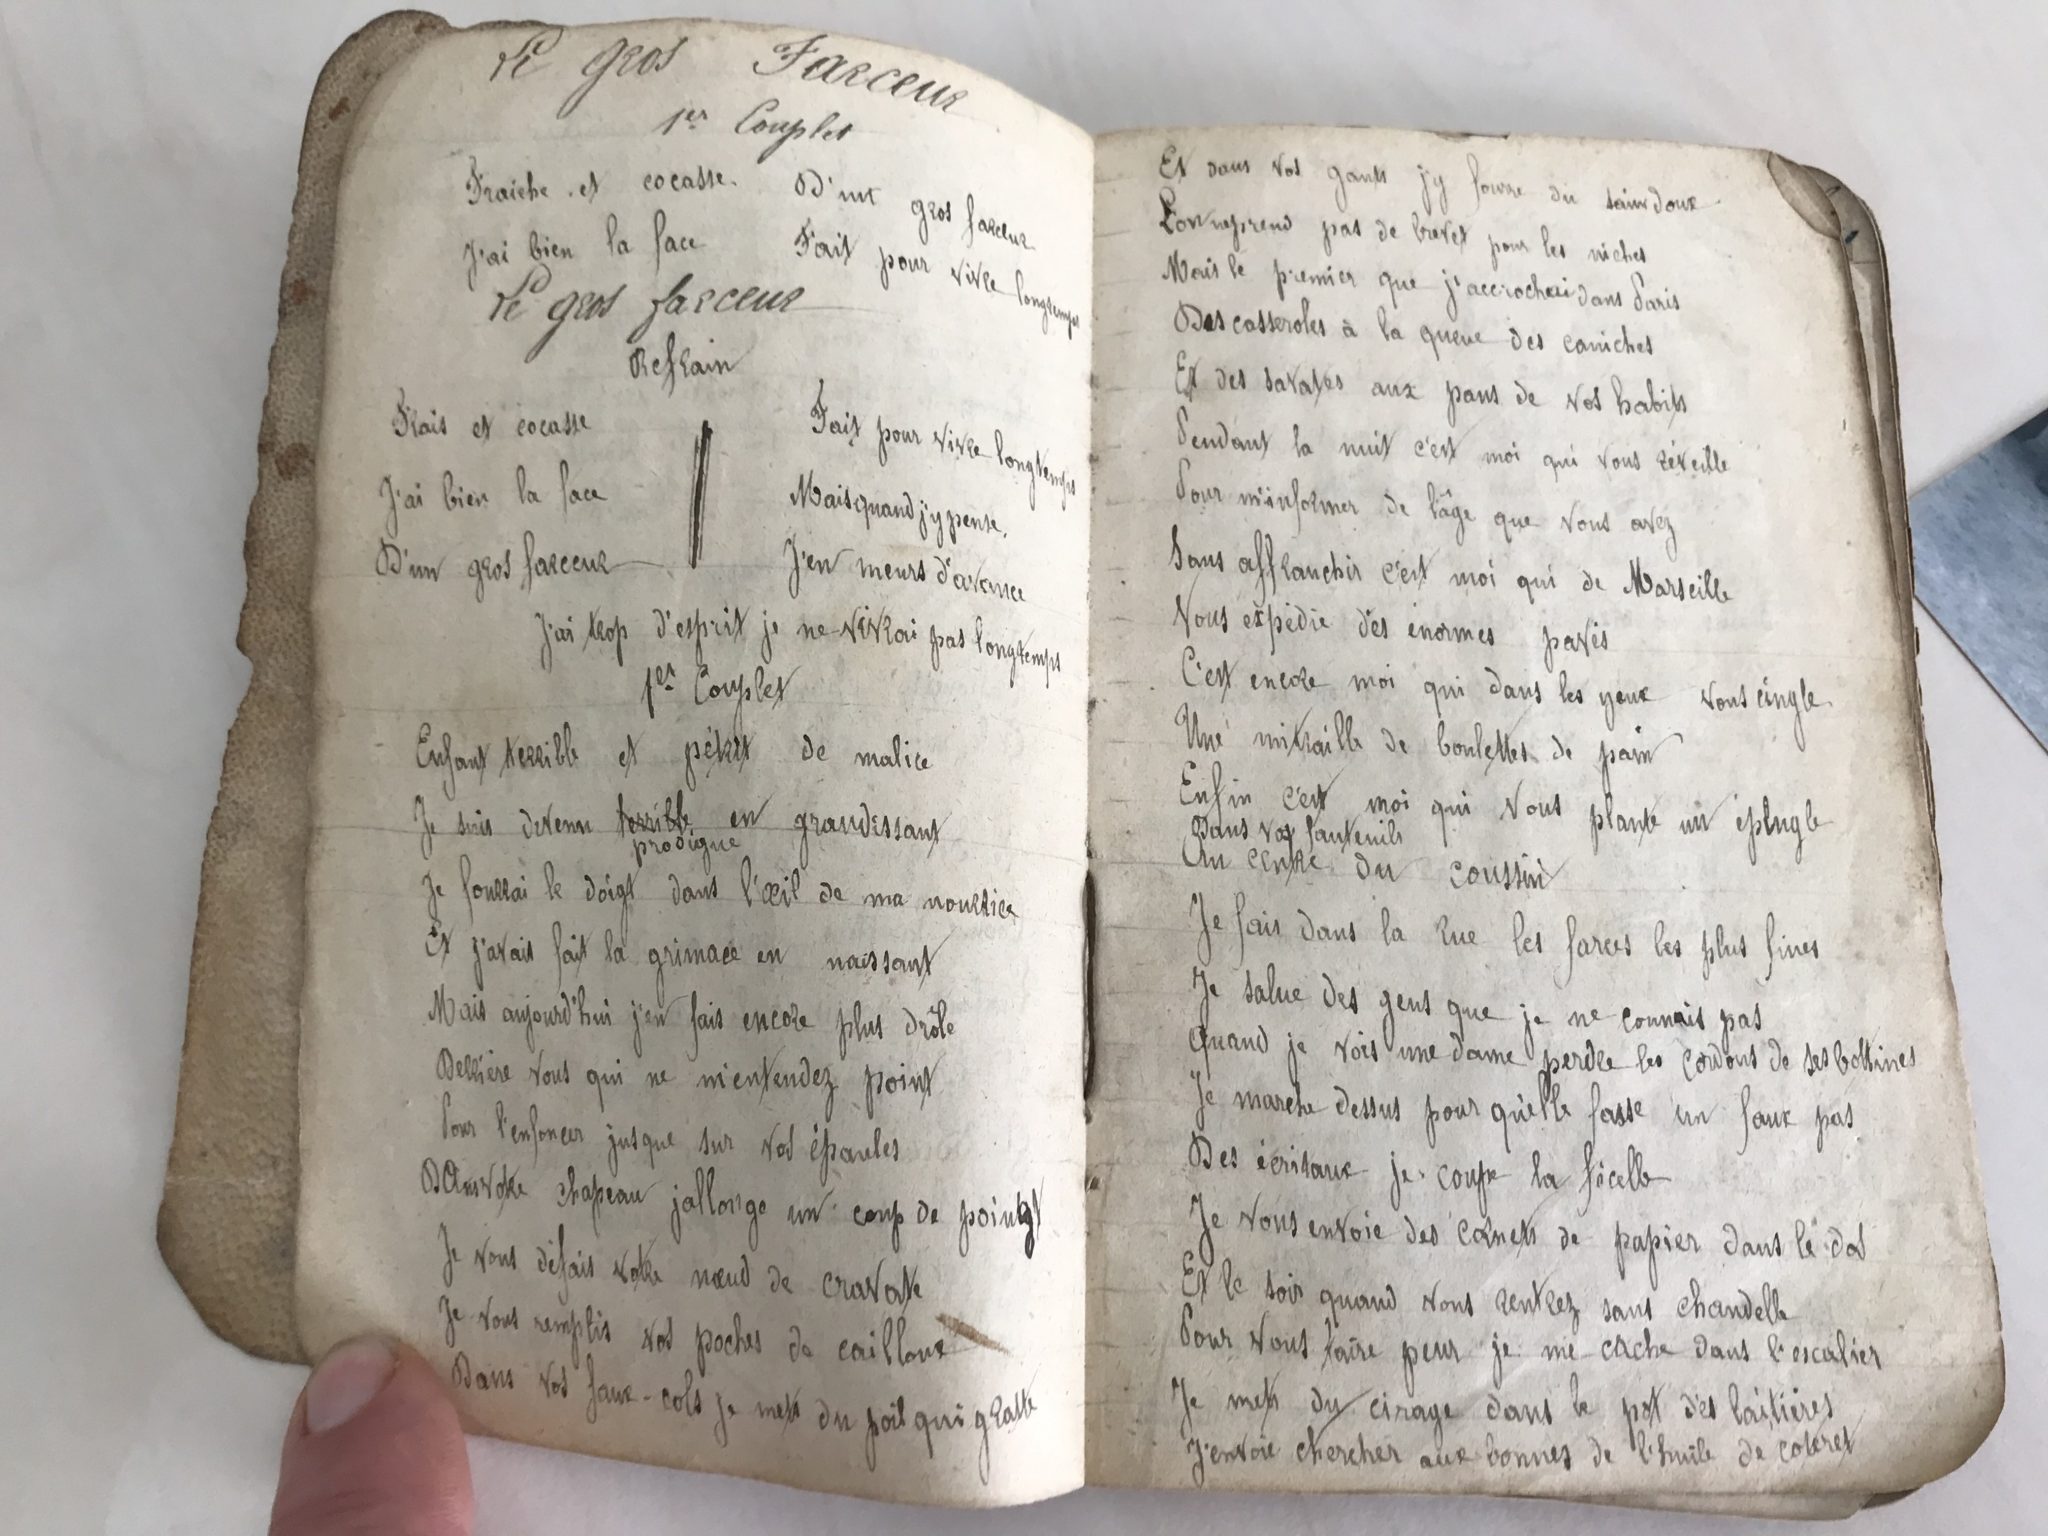 Le gros Farceur
1er Couplet
Fraiche et cocasse. D'un gros farceur
J'ai bien la face Fait pour vivre longtemps
Le gros farceur
Refrain
Frais et cocasse
J'ai bien la face
D'un gros farceur
Fait pour vivre longtemps
Mais quand j'y pense.
J'en meurs d'avance
J'ai trop d'esprit je ne vivrai pas longtemps
1er Couplet
Enfant terrible et pétrit de malice
Je suis devenu terrible en grandessant
prodigue
Je fourrai le doigt dans l'œil de ma nourrice
Et j'avais fait la grimace en naissant
Mais aujourd'hui j'en fais encore plus drôle
Derrière vous qui ne m'entendez point
Pour l'enfoncer jusque sur vos épaules
Dans votre chapeau jallonge un coup de poingt
Je vous défais votre nœud de cravate
Je vous remplis vos poches de cailloux
Dans vos faux-cols je mets du poil qui gratte
Et dans vos gants jy fourre du saindoux
L'on ne prend pas de brevet pour les niches
Mais le premier que j'accrochai dans Paris
Des casseroles à la queue des caniches
Et des savates aux pans de vos habits
Pendant la nuit c'est moi qui vous réveille
Pour m'informer de l'âge que vous avez
Sans affranchir c'est moi qui de Marseille
Vous expédie des énormes pavés
C'est encore moi qui dans les yeux vous cingle
Une mitraille de boulettes de pain
Enfin c'est moi qui vous plante un épingle
Dans vos fauteuils
Au centre du coussin
Je fais dans la rue les farces les plus fines
Je salue des gens que je ne connais pas
Quand je vois une dame perdre les cordons de ses bottines
Je marche dessus pour qu'elle fasse un faux pas
Des écritaux je coupe la ficelle
Je vous envoie des cornets de papier dans le dos
Et le soir quand vous rentrez sans chandelle
Pour vous faire peur je me cache dans l'escalier
Je mets du cirage dans le pot des laitières
J'envoie chercher aux bonnes de l'huile de coteret